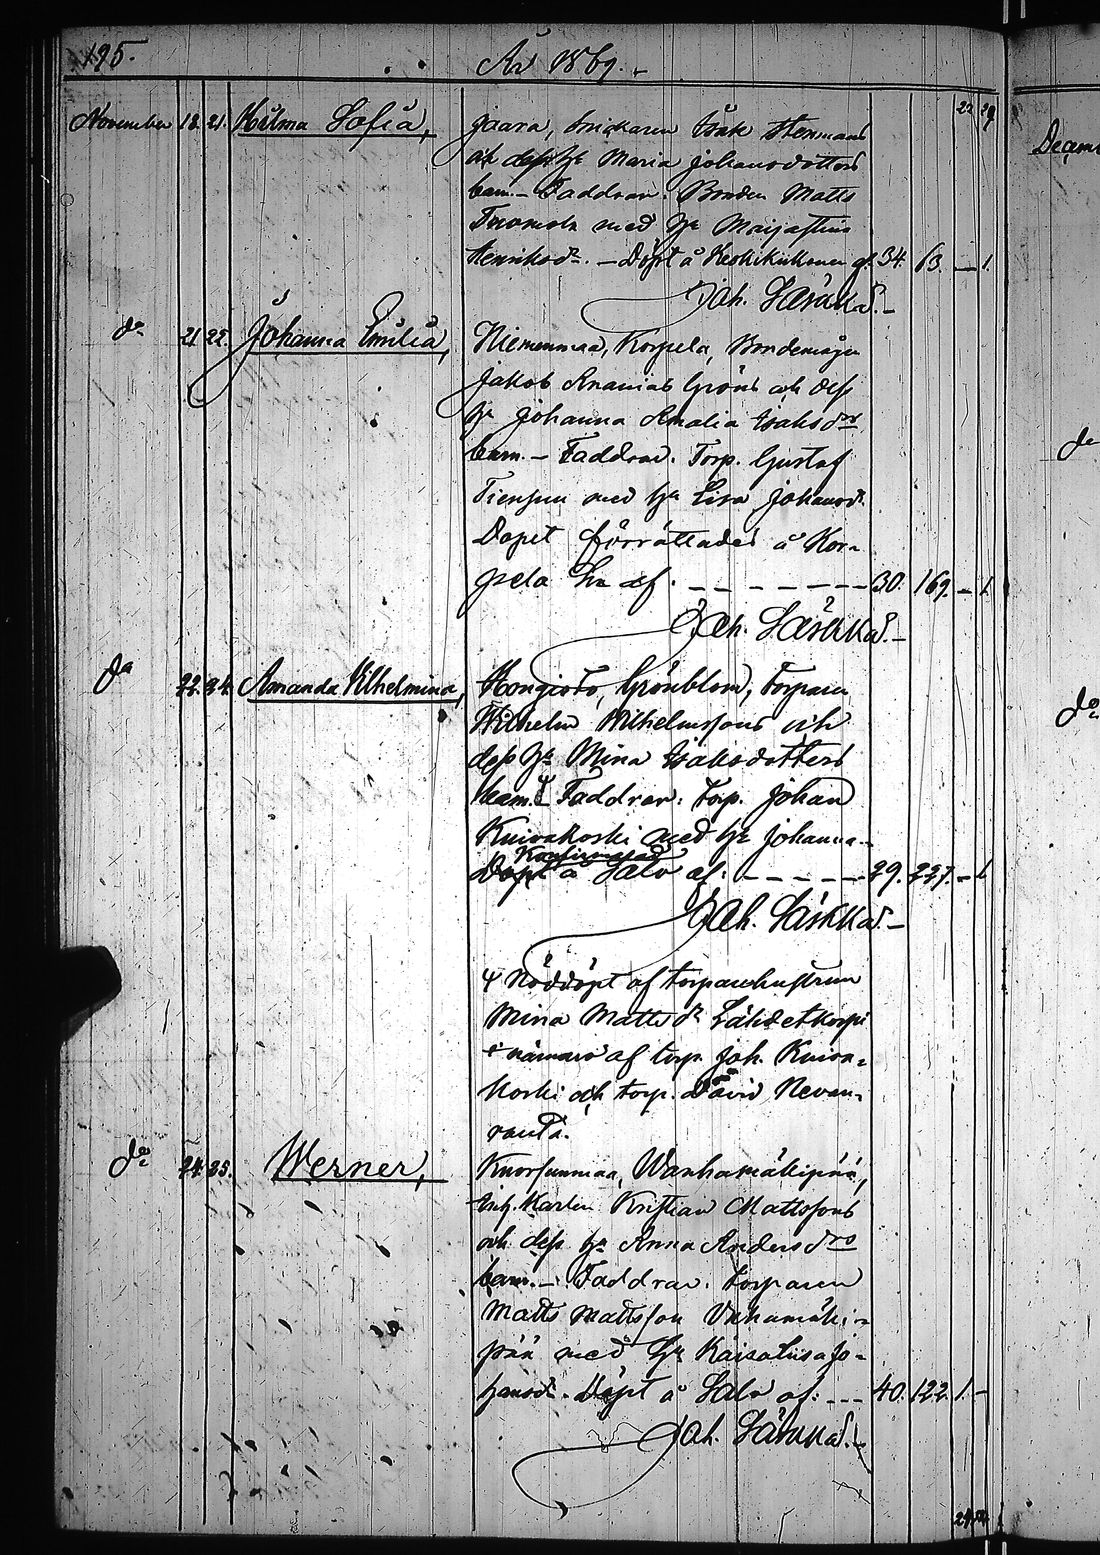 195.
År 1869.
22 29
November 18. 21. Hilma Sofia, Jaara, Isak Stenmans
och dess hu Maria Johansdotters
barn. – Faddrar. Bonden Matts
med hu
Henriksdr. – Döpt å af 34. 63. – 1.
Joh. Särkkä.
do 21 25. Johanna Emilia, Niemenmaa, Korpela, Bondemågen
Jakob Ananias Gröns och dess
hu Johanna Amalia Isaksdrs
barn. – Faddrar. Torp. Gustaf
med hu Lisa Johansd.
Dopet förrättades å Kor-
pela af. – – – – – – 30. 169. – 1.
Joh. Särkkä.
do 22. 24. Amanda Vilhelmina, Hongisto, Grönblom, Torparen
Wilhelm Wilhelmssons och
dess hu Mina Isaksdotters
barn. Faddrar: Torp. Johan
Knivakoski med hu Johanna.
Konfirmerad
Döpt å Salo af: – – – – – 29. 227. – 1
Joh. Särkkä.
Nöddöpt af torparehustrun
Mina Mattsdr Lähdetkorpi
i närvaro af torp. Joh. Kniva-
koski och torp. David Nevan-
ranta.
do 24. 25. Werner, Knorsunmaa, Wanhamäkipää,
Inh. Karlen Kristian Mattssons
och dess hu Anna Andersdrs
barn. – Faddrar. Torparen
Matts Mattsson Vnhamäki-
pää med hu Kaisa Lisa Jo-
hansd. Döpt å Salo af: – – – 40. 122. 1. –
Joh. Särkkä.
Decem
do
do.